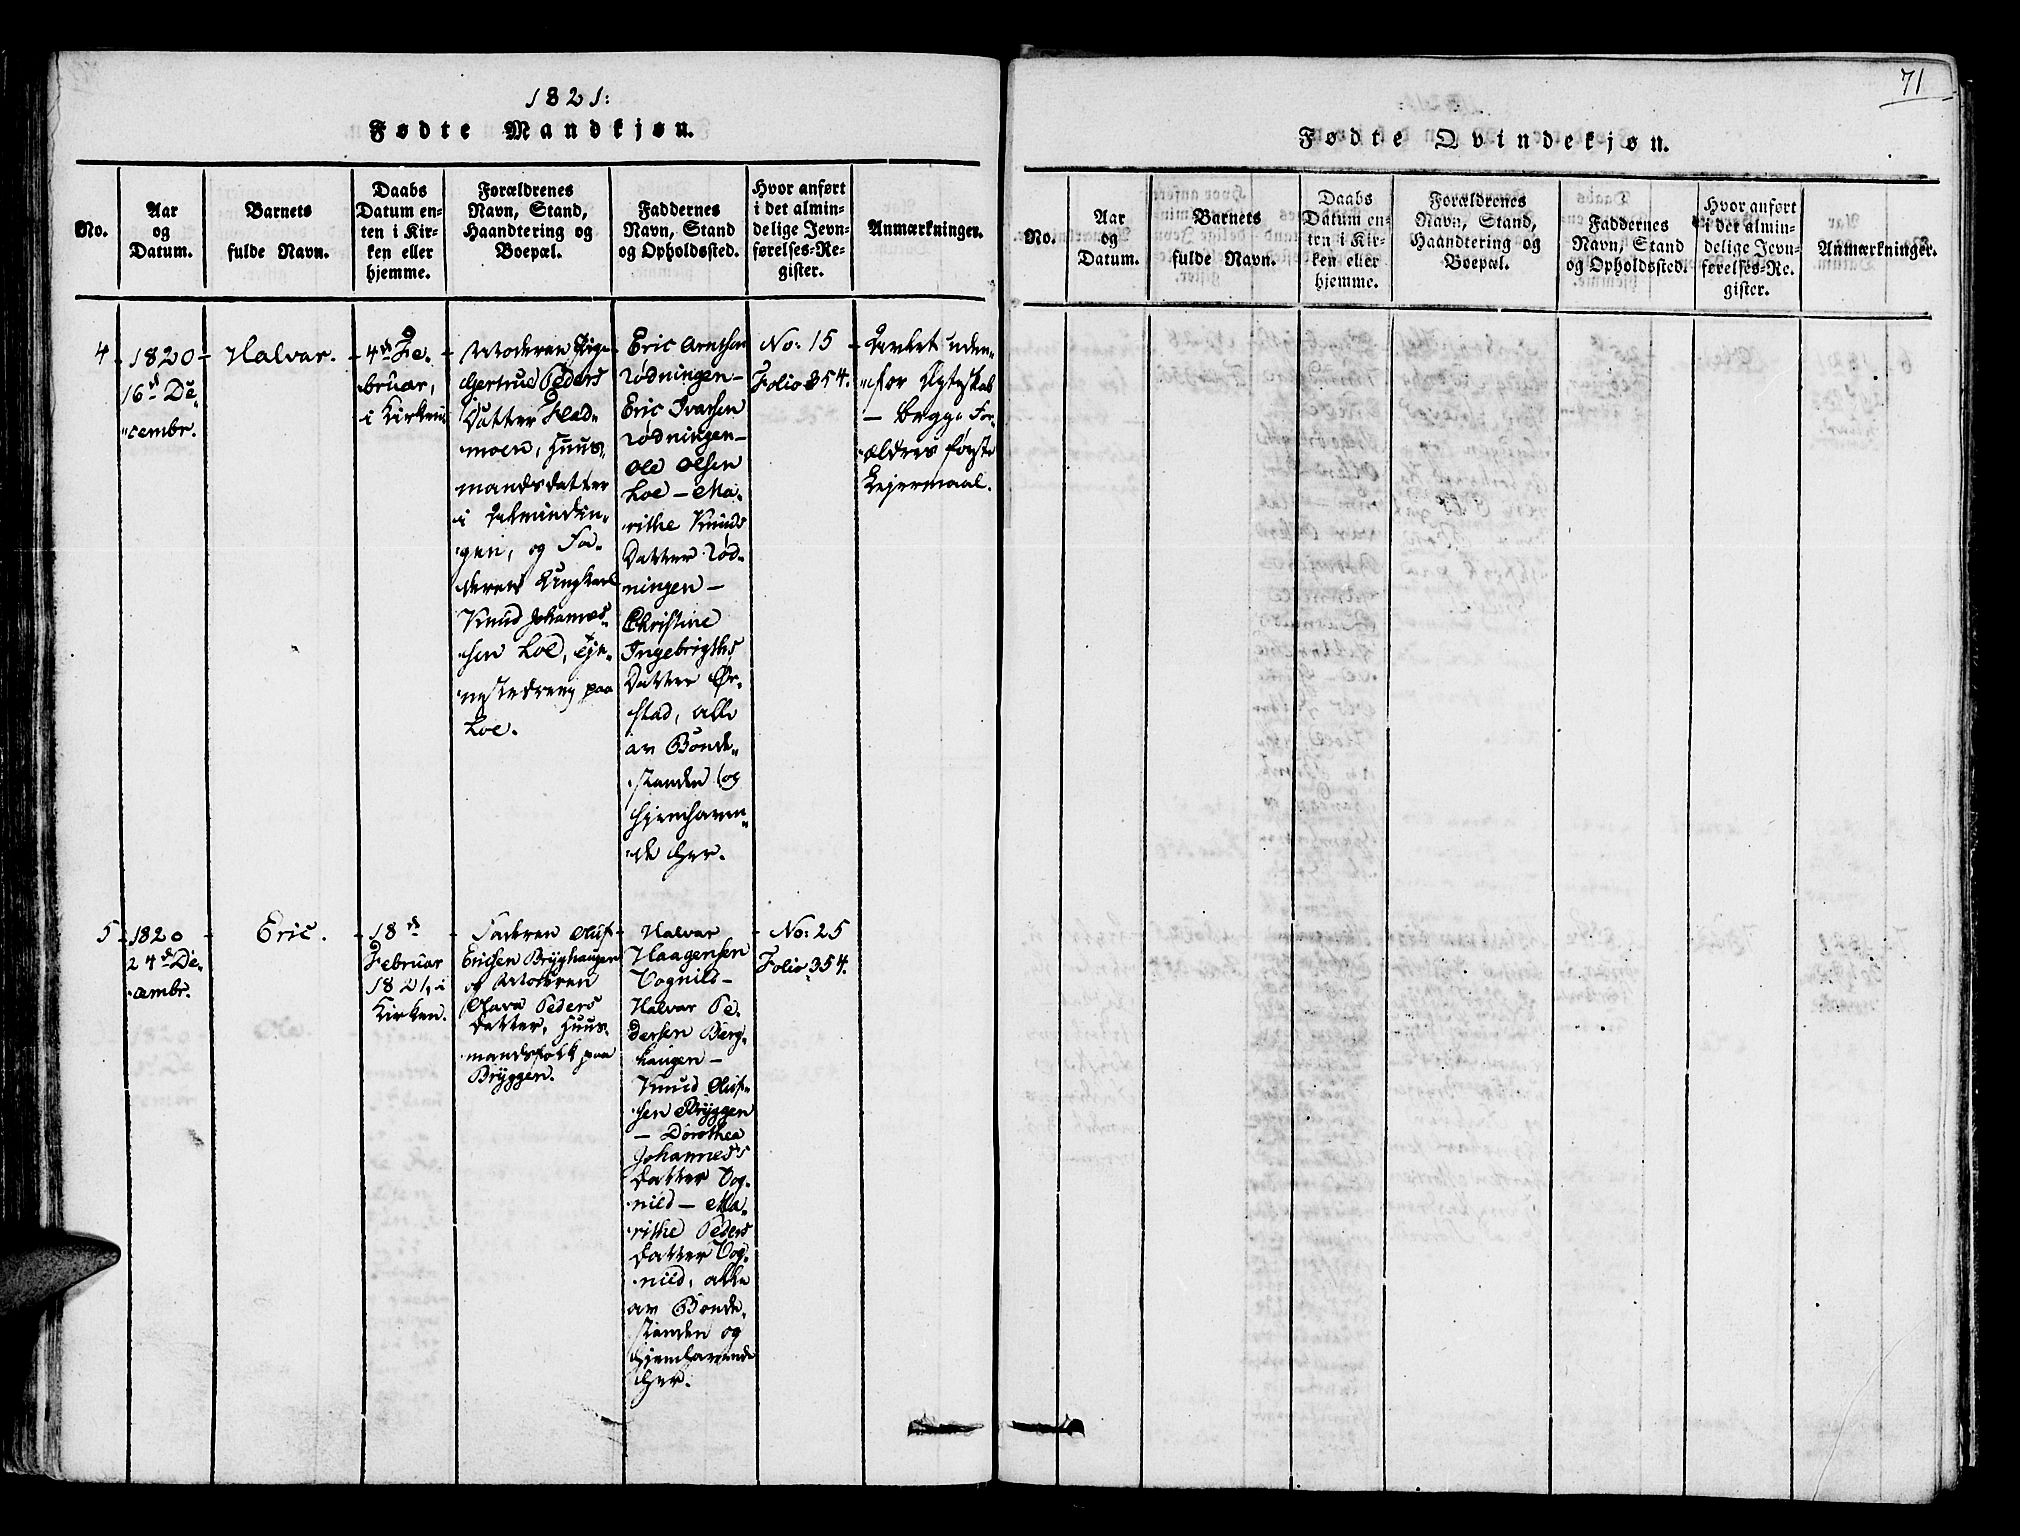 1821:
Fødte Mandkjøn.
No.
Aar
og
Datum.
Barnets
fulde Navn.
Daabs
Datum en-
ten i Kir-
ken eller
hjemme.
Forældrenes
Navn, Stand,
Haandtering og
Boepæl.
Faddernes
Navn, Stand
og Opholdssted.
Hvor anført
i det almin-
delige Jevn-
førelses-Re-
gister.
Anmærkninger.
4
1820
16d De,,
,,cembr.
Halvar.
4de Fe,,
bruar,
i Kirken
Moderen Pige
Gertrud Peders
Datter Hed-
moen, Huus,,
mandsdatter
i Almindin,,
gen, og Fa-
deren Ungkarl
Knud Johannes-
sen Loe,
paa
Loe.
Eric Arntsen
Rødningen –
Eric Ivarsen
Rødningen –
Ole Olsen
Loe – Ma,,
rithe Knuds
Datter Rød,,
ningen –
Christine
Ingebrigths
Datter Ør-
stad, alle
av Bonde,,
standen og
hjemhøren,,
de her.
No: 15
Folio 354.
Avlet uden,,
for Ægteskab
– begge For,,
ældres første
Lejermaal.
5
1820
24d De,,
cembr.
Eric.
18de
Februar
1821, i
Kirken.
Faderen Oluf
Ericsen Brygghaugen
og Moderen
Peders
datter, Huus,,
mandsfolk paa
Bryggen.
Halvar
Haagensen
Vognild –
Halvar Pe,,
dersen Berg,,
haugen –
Knud Oluf,,
sen Bryggen
– Dorothea
Johannes's
Datter Vog,,
nild – Ma,,
rithe Peders
Datter Vog,,
nild, alle
av Bonde,,
standen og
hjemhørende
her.
No: 25
Folio 354.
71
Fødte Qvindekjøn.
No.
Aar
og
Datum.
Barnets
fulde Navn.
Daabs
Datum en-
ten i Kir-
ken eller
hjemme.
Forældrenes
Navn, Stand,
Haandtering og
Boepæl.
Faddernes
Navn, Stand
og Opholdssted.
Hvor anført
i det almin-
delige Jevn-
førelses-Re-
gister.
Anmærkninger.